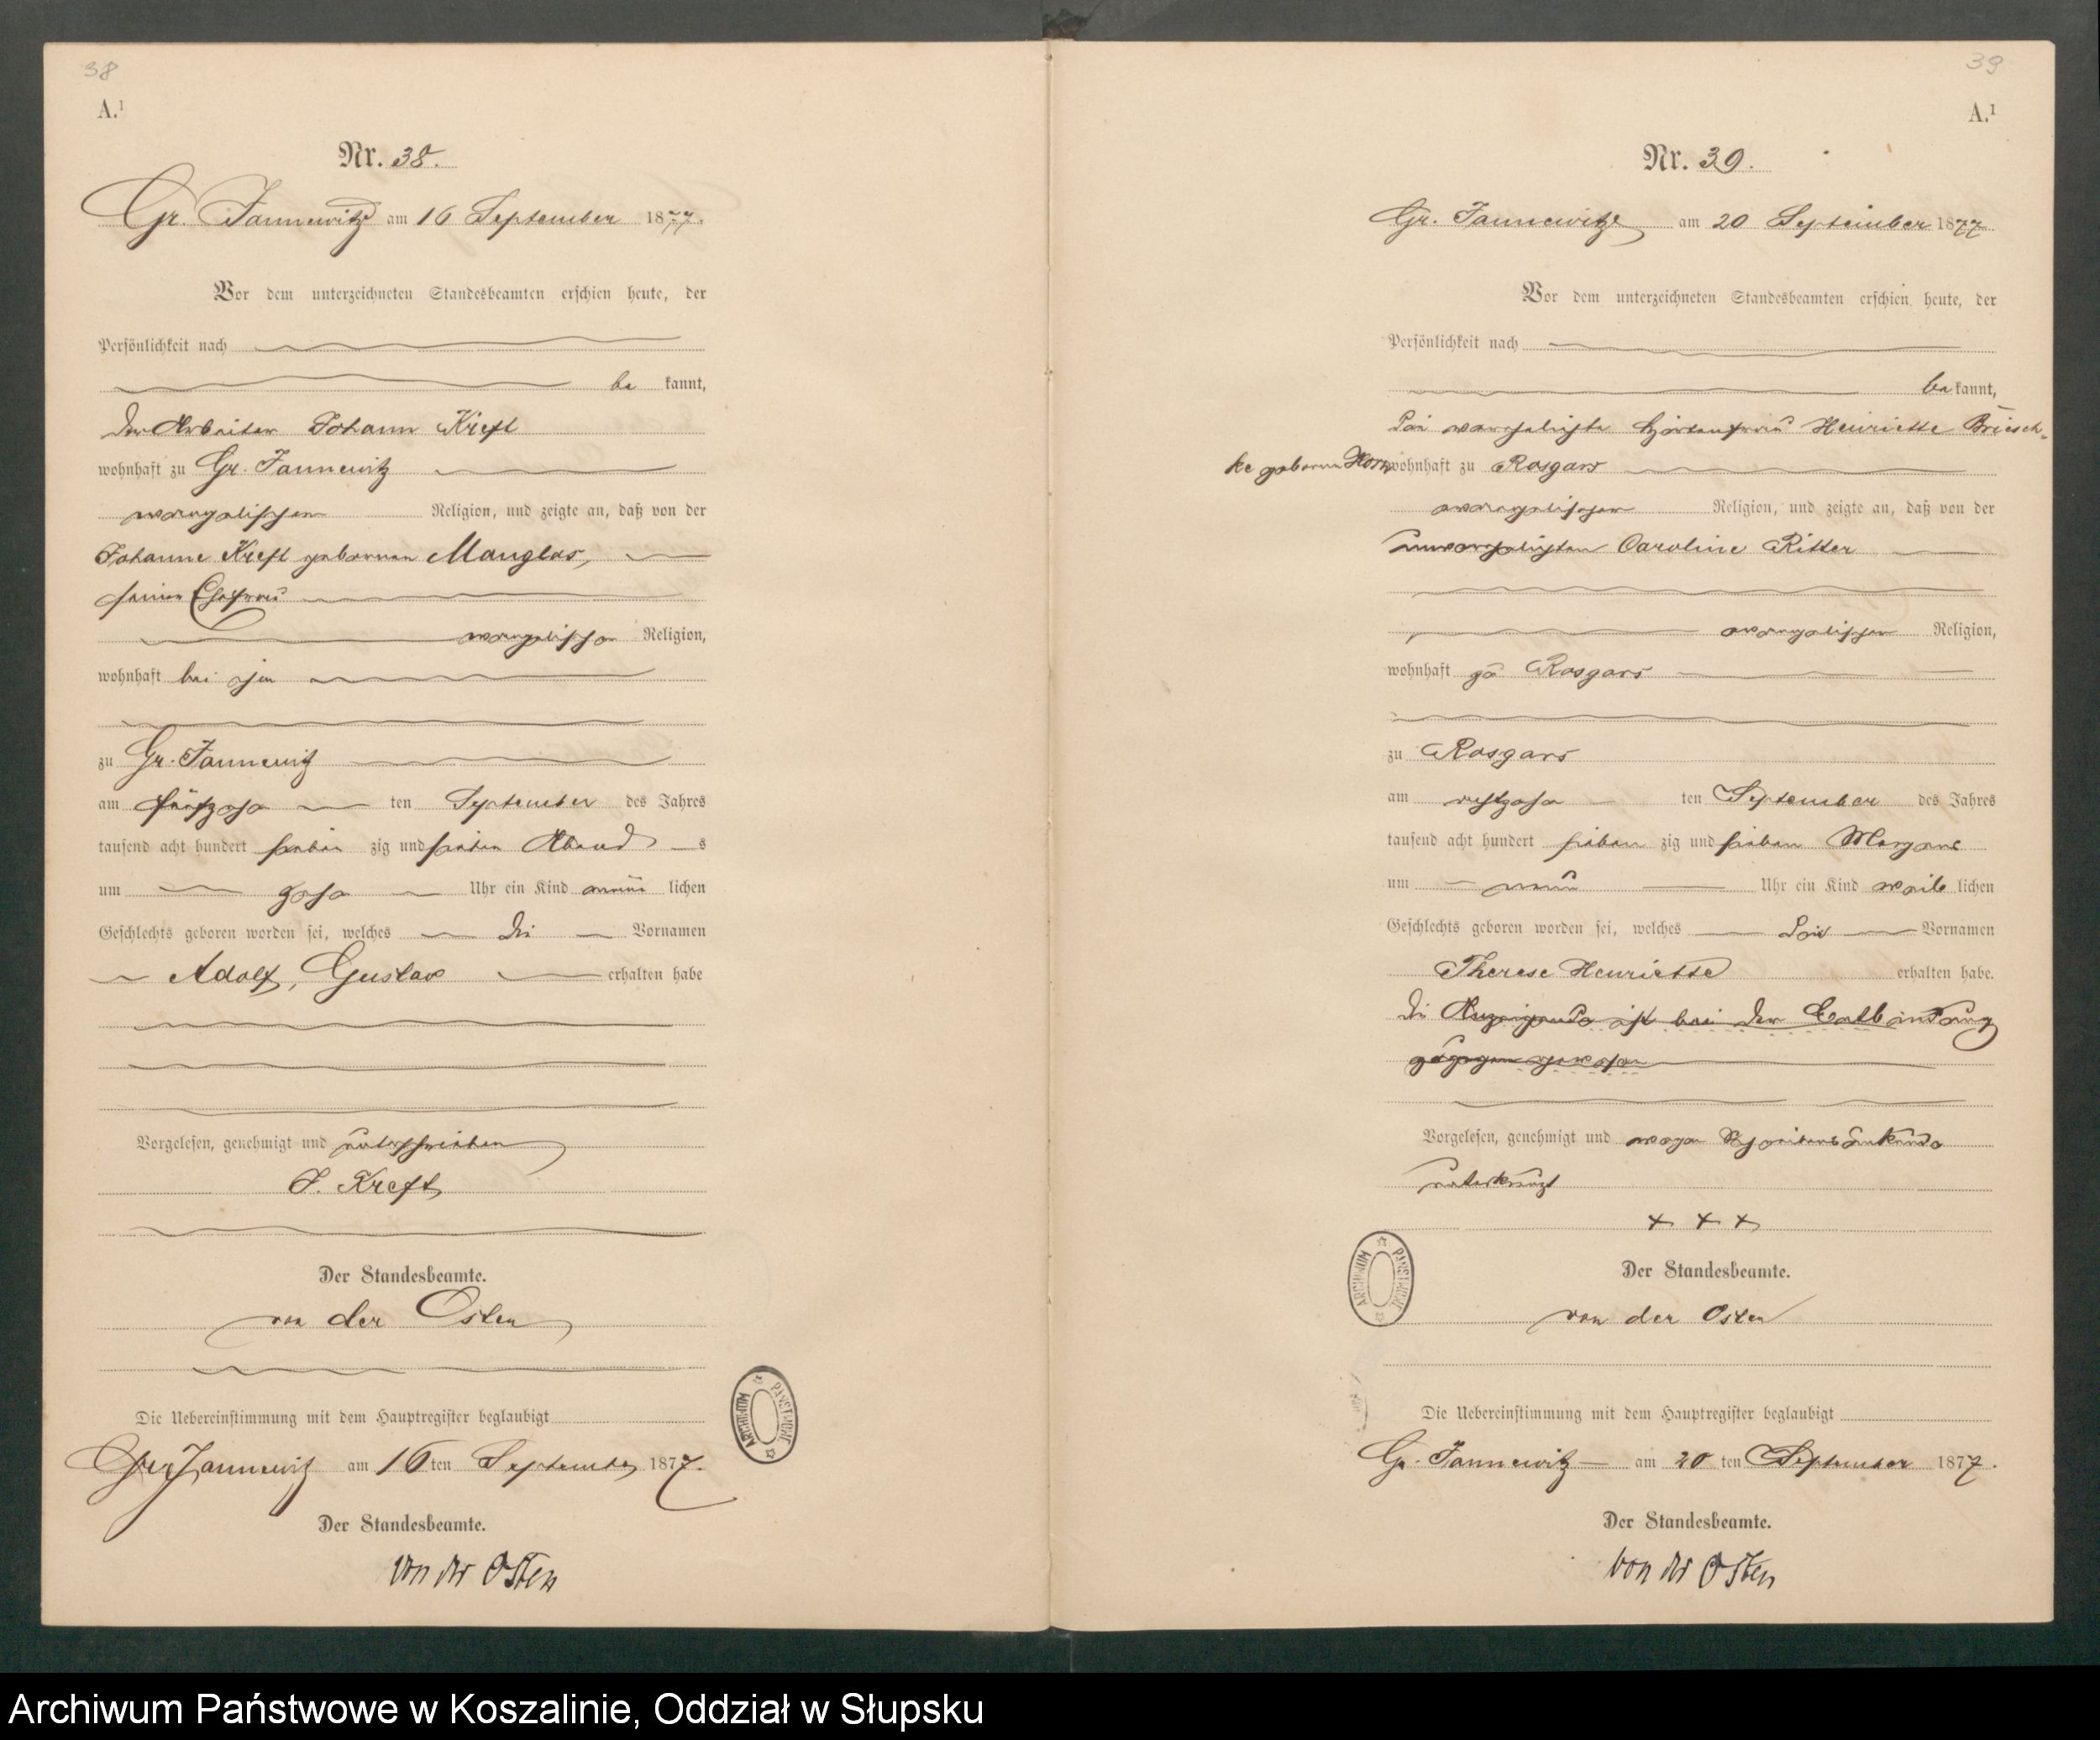 38
A.¹
Nr. 38.
Gr. Jannewitz am 16 September 1877.
Vor dem unterzeichneten Standesbeamten erschien heute, der
Persönlichkeit nach
be kannt,
der Arbeiter Johann Kreft
wohnhaft zu Gr. Jannewitz
evangelischer Religion, und zeigte an, daß von der
Johanne Kreft geborenen Manglas,
seiner Ehefrau
evangelischer Religion,
wohnhaft bei ihm
zu Gr. Jannewitz
am fünfzehn ten September des Jahres
tausend acht hundert sieben zig und sieben Abend s
um zehn Uhr ein Kind männ lichen
Geschlechts geboren worden sei, welches die Vornamen
Adolf, Gustav erhalten habe
Vorgelesen, genehmigt und unterschrieben
J. Kreft
Der Standesbeamte.
von der Osten
Die Uebereinstimmung mit dem Hauptregister beglaubigt
Gr. Jannewitz am 16 ten September 1877.
Der Standesbeamte.
von der Osten
ARCHIWUM PAŃSTWOWE
39
A.¹
Nr. 39.
Gr. Jannewitz am 20 September 1877
Vor dem unterzeichneten Standesbeamten erschien heute, der
Persönlichkeit nach
be kannt,
die verehelichte Hirtenfrau Henriette Briesch-
ke geborene Horn wohnhaft zu Rosgars
evangelischer Religion, und zeigte an, daß von der
unverehelichten Caroline Ritter
evangelischer Religion,
wohnhaft zu Rosgars
zu Rosgars
am achtzehn ten September des Jahres
tausend acht hundert sieben zig und sieben Morgens
um neun Uhr ein Kind weib lichen
Geschlechts geboren worden sei, welches die Vornamen
Therese Henriette erhalten habe.
die Anzeigende ist bei der Entbindung
zugegen gewesen
Vorgelesen, genehmigt und wegen Schreibensunkunde
unterkreuzt
+ + +
Der Standesbeamte.
von der Osten
ARCHIWUM PAŃSTWOWE
Die Uebereinstimmung mit dem Hauptregister beglaubigt
Gr. Jannewitz am 20 ten September 1877.
Der Standesbeamte.
von der Osten
Archiwum Państwowe w Koszalinie, Oddział w Słupsku